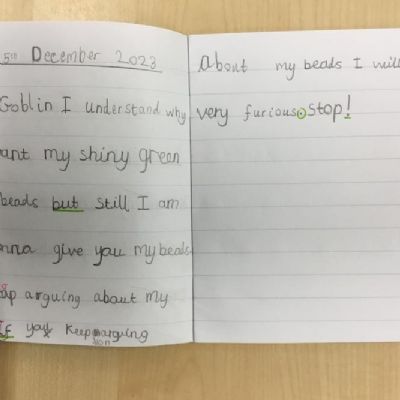 5th December 2023
Goblin I understand why
ant my shiny green
beads but still I am
nna give you my beads
op arguing about my
If you keep arguing
About my beads I will
very furious. stop!